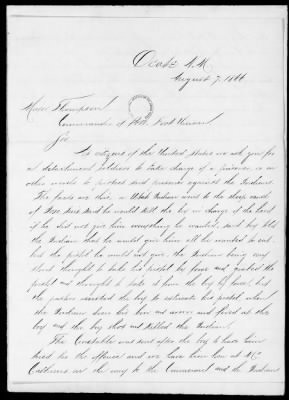 Ocate N.M.
August 7, 1866
Major Thompson
Commander of Post Fort Union
Sir
As citizens of the United States we ask you for
a detachment soldiers to take charge of a prisoner in
other words to protect said prisoner against the Indians.
The facts are this, a Utah Indian went to the sheep
at and said he would kill the boy in charge of the herd
if he did not give him everything he wanted, said boy told
the Indian that he would give him all he wanted to eat.
but the pistol he could not give, the Indian being very
thought to take his pistol by force and grabed the
pistol and thought to take it from the boy by force, but
the the boy to his pistol when
the Indian drew his bow and arrow and fired at the
boy and the boy shot and killed the Indian.
The Constable was sent after the boy to have him
tried for the offence and we have him here at Mr.
on the way to the and the Indians